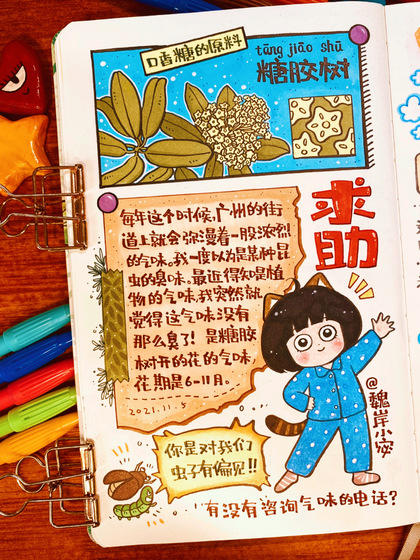 口香糖的原料
táng jiāo shù
糖胶树
求
助
每年这个时候,广州的街
道上就会弥漫着一股浓烈
的气味。我一度以为是某种昆
虫的臭味。最近得知是植
物的气味,我突然就
觉得这气味没有
那么臭了!是糖胶
树开的花的气味,
花期是6-11月。
2021.11.5
@魏岸小姿
你是对我们
虫子有偏见!!
有没有咨询气味的电话?